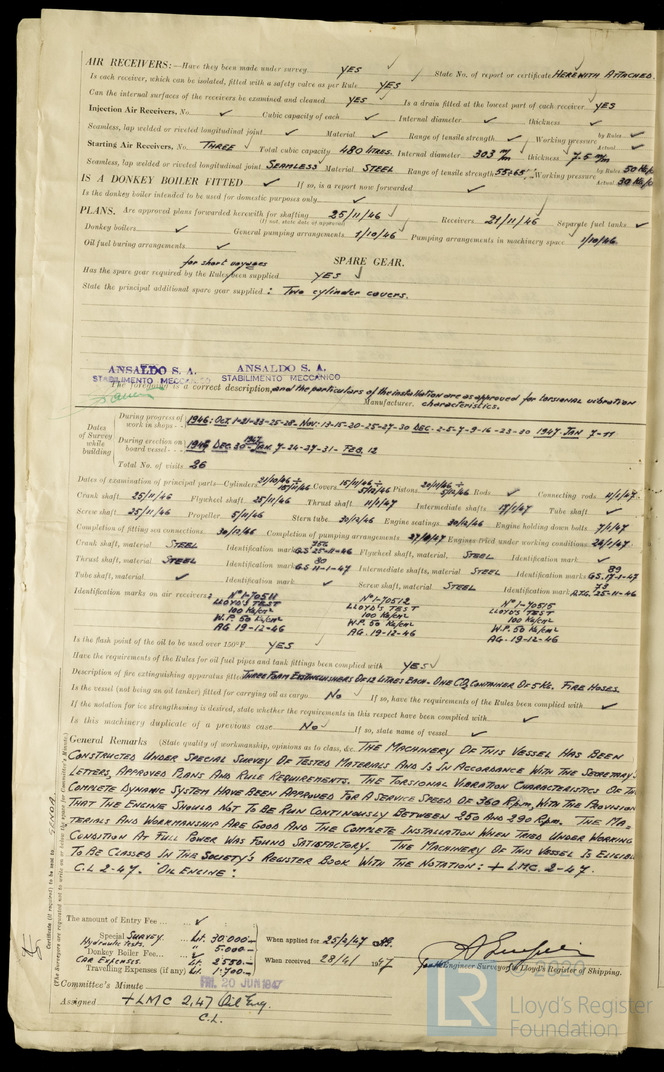 AIR RECEIVERS:—Have they been made under survey YES ✓ State No. of report or certificate HEREWITH ATTACHED.
Is each receiver, which can be isolated, fitted with a safety valve as per Rule YES
Can the internal surfaces of the receivers be examined and cleaned YES ✓ Is a drain fitted at the lowest part of each receiver YES
Injection Air Receivers, No. ✓ Cubic capacity of each ✓ Internal diameter ✓ thickness ✓
Seamless, lap welded or riveted longitudinal joint ✓ Material ✓ Range of tensile strength ✓ Working pressure by Rules ✓ Actual ✓
Starting Air Receivers, No. THREE ✓ Total cubic capacity 480 LITRES. Internal diameter 303 m/m thickness 7.5 m/m
Seamless, lap welded or riveted longitudinal joint SEAMLESS ✓ Material STEEL Range of tensile strength 55-65 Working pressure by Rules 50 Actual 30
IS A DONKEY BOILER FITTED ✓ If so, is a report now forwarded ✓
Is the donkey boiler intended to be used for domestic purposes only ✓
PLANS. Are approved plans forwarded herewith for shafting 25/11/46 ✓ Receivers 21/11/46 ✓ Separate fuel tanks ✓
(If not, state date of approval)
Donkey boilers ✓ General pumping arrangements 1/10/46 ✓ Pumping arrangements in machinery space 1/10/46
Oil fuel burning arrangements ✓
SPARE GEAR.
for short voyages
Has the spare gear required by the Rules been supplied YES ✓
State the principal additional spare gear supplied: Two cylinder covers.
ANSALDO S. A. ANSALDO S. A.
STABILIMENTO MECCANICO STABILIMENTO MECCANICO
The foregoing is a correct description, and the particulars of the installation are as approved for torsional vibration
Manufacturer. characteristics.
Dates of Survey while building
During progress of work in shops - - 1946: OCT. 1-21-23-25-28 NOV. 13-15-20-25-27-30 DEC. 2-5-7-9-16-23-20 1947 JAN 7-11
During erection on board vessel - - - 1946 DEC. 30 1947 JAN. 7-24-27-31 FEB. 12
Total No. of visits 26
Dates of examination of principal parts—Cylinders 21/10/46 ÷ 15/11/46 Covers 15/11/46 ÷ 5/12/46 Pistons 20/11/46 ÷ 5/12/46 Rods ✓ Connecting rods 11/1/47
Crank shaft 25/11/46 Flywheel shaft 25/11/46 Thrust shaft 11/1/47 Intermediate shafts 17/1/47 Tube shaft ✓
Screw shaft 25/11/46 Propeller 5/11/46 Stern tube 20/12/46 Engine seatings 30/12/46 Engine holding down bolts 7/1/47
Completion of fitting sea connections 30/12/46 Completion of pumping arrangements Engines tried under working conditions 24/1/47
Crank shaft, material STEEL Identification mark G.S 25-11-46 Flywheel shaft, material STEEL Identification mark ✓
Thrust shaft, material STEEL Identification mark 80 G.S 11-1-47 Intermediate shafts, material STEEL Identification marks 89 G.S. 17-1-47
Tube shaft, material ✓ Identification mark ✓ Screw shaft, material STEEL Identification mark 73 25-11-46
Identification marks on air receivers: Nº 1-70511 Nº 1-70512 Nº 1-70515
LLOYD'S TEST LLOYD'S TEST LLOYD'S TEST
100 Kg/cm² 100 Kg/cm² 100 Kg/cm²
W.P. 50 Kg/cm² W.P. 50 Kg/cm² W.P. 50 Kg/cm²
AG 19-12-46 AG. 19-12-46 AG. 19-12-46
Is the flash point of the oil to be used over 150°F. YES ✓
Have the requirements of the Rules for oil fuel pipes and tank fittings been complied with YES ✓
Description of fire extinguishing apparatus fitted THREE FOAM EXTINGUISHERS OF 12 LITRES EACH. ONE CO2 CONTAINER OF 5 KG. FIRE HOSES.
Is the vessel (not being an oil tanker) fitted for carrying oil as cargo NO ✓ If so, have the requirements of the Rules been complied with ✓
If the notation for ice strengthening is desired, state whether the requirements in this respect have been complied with ✓
Is this machinery duplicate of a previous case NO ✓ If so, state name of vessel ✓
General Remarks (State quality of workmanship, opinions as to class, &c. THE MACHINERY OF THIS VESSEL HAS BEEN
CONSTRUCTED UNDER SPECIAL SURVEY OF TESTED MATERIALS AND IS IN ACCORDANCE WITH THE SECRETARY'S
LETTERS, APPROVED PLANS AND RULE REQUIREMENTS. THE TORSIONAL VIBRATION CHARACTERISTICS OF THE
COMPLETE DYNAMIC SYSTEM HAVE BEEN APPROVED FOR A SERVICE SPEED OF 360 Rpm, WITH THE PROVISION
THAT THE ENGINE SHOULD NOT TO BE RUN CONTINOUSLY BETWEEN 250 AND 290 Rpm. THE MA-
TERIALS AND WORKMANSHIP ARE GOOD AND THE COMPLETE INSTALLATION WHEN TRIED UNDER WORKING
CONDITION AT FULL POWER WAS FOUND SATISFACTORY. THE MACHINERY OF THIS VESSEL IS ELIGIBLE
TO BE CLASSED IN THE SOCIETY'S REGISTER BOOK WITH THE NOTATION: + LMC. 2-47.
C.L 2-47. "OIL ENGINE".
GENOA.
Certificate (if required) to be sent to
(The Surveyors are requested not to write on or below the space for Committee's Minute.)
The amount of Entry Fee ... ✓
Special SURVEY. Lt. 30.000.-
Hydraulic tests. " 5.000.-
Donkey Boiler Fee... ✓
CAR EXPENSES. Lt. 2.550.-
Travelling Expenses (if any) Lt. 1.700.-
When applied for 25/2/47
When received 28/4/ 1947
Engine Surveyor to Lloyd's Register of Shipping.
Committee's Minute FRI. 20 JUN 1947
Assigned + LMC 2,47 Oil Eng.
C.L.
© 2020
LR
Lloyd's Register
Foundation